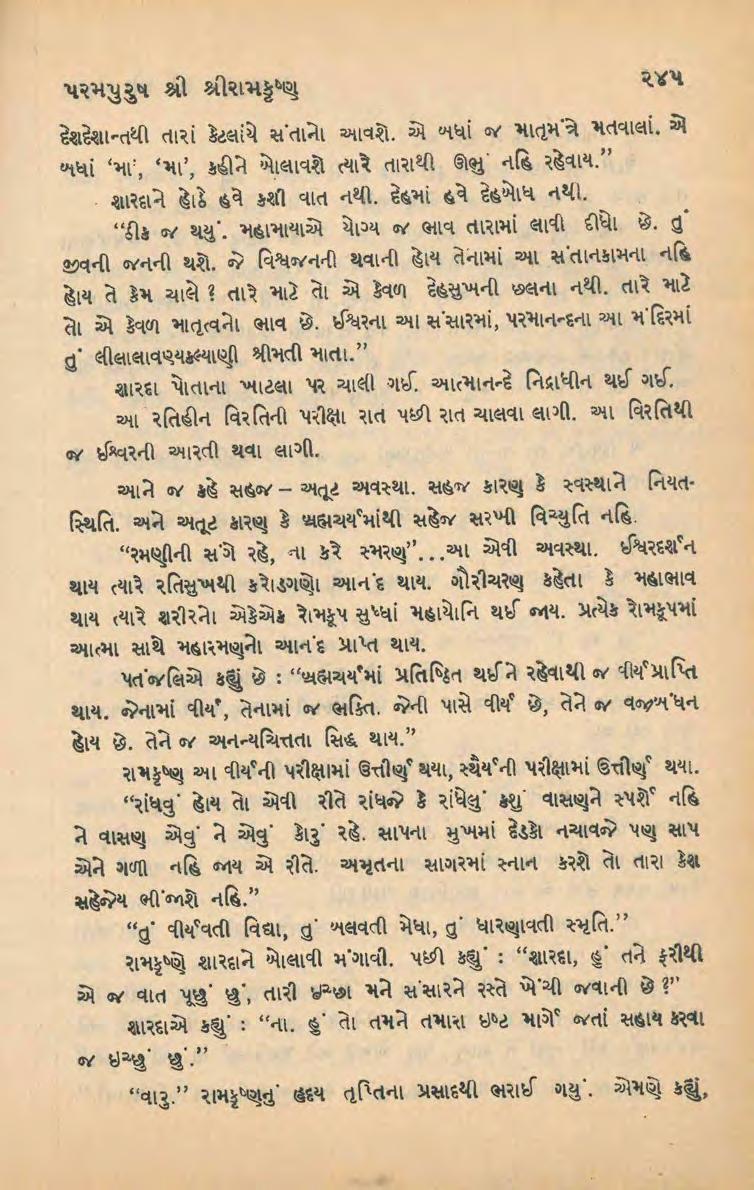 પરમપુરુષ શ્રી શ્રીરામકૃષ્ણ
૨૪૫
દેશદેશાન્તથી તારાં કેટલાંયે સંતાનો આવશે. એ બધાં જ માતૃમંત્રે મતવાલાં. એ
બધાં ‘મા’, ‘મા’, કહીને બોલાવશે ત્યારે તારાથી ઊભું નહિ રહેવાય.”
શારદાને હોઠે હવે કશી વાત નથી. દેહમાં હવે દેહબોધ નથી.
“ઠીક જ થયું. મહામાયાએ યોગ્ય જ ભાવ તારામાં લાવી દીધો છે. તું
જીવની જનની થશે. જે વિશ્વજનની થવાની હોય તેનામાં આ સંતાનકામના નહિ
હોય તે કેમ ચાલે ? તારે માટે તો એ કેવળ દેહસુખની છલના નથી. તારે માટે
તો એ કેવળ માતૃત્વનો ભાવ છે. ઈશ્વરના આ સંસારમાં, પરમાનન્દના આ મંદિરમાં
તું લીલાલાવણ્યકલ્યાણી શ્રીમતી માતા.”
શારદા પોતાના ખાટલા પર ચાલી ગઈ. આત્માનન્દે નિદ્રાધીન થઈ ગઈ.
આ રતિહીન વિરતિની પરીક્ષા રાત પછી રાત ચાલવા લાગી. આ વિરતિથી
જ ઈશ્વરની આરતી થવા લાગી.
આને જ કહે સહજ – અતૂટ અવસ્થા. સહજ કારણ કે સ્વસ્થાને નિયત-
સ્થિતિ. અને અતૂટ કારણ કે બ્રહ્મચર્યમાંથી સહેજ સરખી વિચ્યુતિ નહિ.
“રમણીની સંગે રહે, ના કરે સ્મરણ”...આ એવી અવસ્થા. ઈશ્વરદર્શન
થાય ત્યારે રતિસુખથી કરોડગણો આનંદ થાય. ગૌરીચરણ કહેતા કે મહાભાવ
થાય ત્યારે શરીરનો એકેએક રોમકૂપ સુધ્ધાં મહાયોનિ થઈ જાય. પ્રત્યેક રોમકૂપમાં
આત્મા સાથે મહારમણનો આનંદ પ્રાપ્ત થાય.
પતંજલિએ કહ્યું છે : “બ્રહ્મચર્યમાં પ્રતિષ્ઠિત થઈને રહેવાથી જ વીર્યપ્રાપ્તિ
થાય. જેનામાં વીર્ય, તેનામાં જ ભક્તિ. જેની પાસે વીર્ય છે, તેને જ વજ્રબંધન
હોય છે. તેને જ અનન્યચિત્તતા સિદ્ધ થાય.”
રામકૃષ્ણ આ વીર્યની પરીક્ષામાં ઉત્તીર્ણ થયા, સ્થૈર્યની પરીક્ષામાં ઉત્તીર્ણ થયા.
“રાંધવું હોય તો એવી રીતે રાંધજે કે રાંધેલું કશું વાસણને સ્પર્શે નહિ
ને વાસણ એવું ને એવું કોરું રહે. સાપના મુખમાં દેડકો નચાવજે પણ સાપ
એને ગળી નહિ જાય એ રીતે. અમૃતના સાગરમાં સ્નાન કરશે તો તારા કેશ
સહેજેય ભીંજાશે નહિ.”
“તું વીર્યવતી વિદ્યા, તું બલવતી મેધા, તું ધારણાવતી સ્મૃતિ.”
રામકૃષ્ણે શારદાને બોલાવી મંગાવી. પછી કહ્યું : “શારદા, હું તને ફરીથી
એ જ વાત પૂછું છું, તારી ઇચ્છા મને સંસારને રસ્તે ખેંચી જવાની છે ?”
શારદાએ કહ્યું : “ના. હું તો તમને તમારા ઇષ્ટ માર્ગે જતાં સહાય કરવા
જ ઇચ્છું છું.”
“વારુ.” રામકૃષ્ણનું હૃદય તૃપ્તિના પ્રસાદથી ભરાઈ ગયું. એમણે કહ્યું,